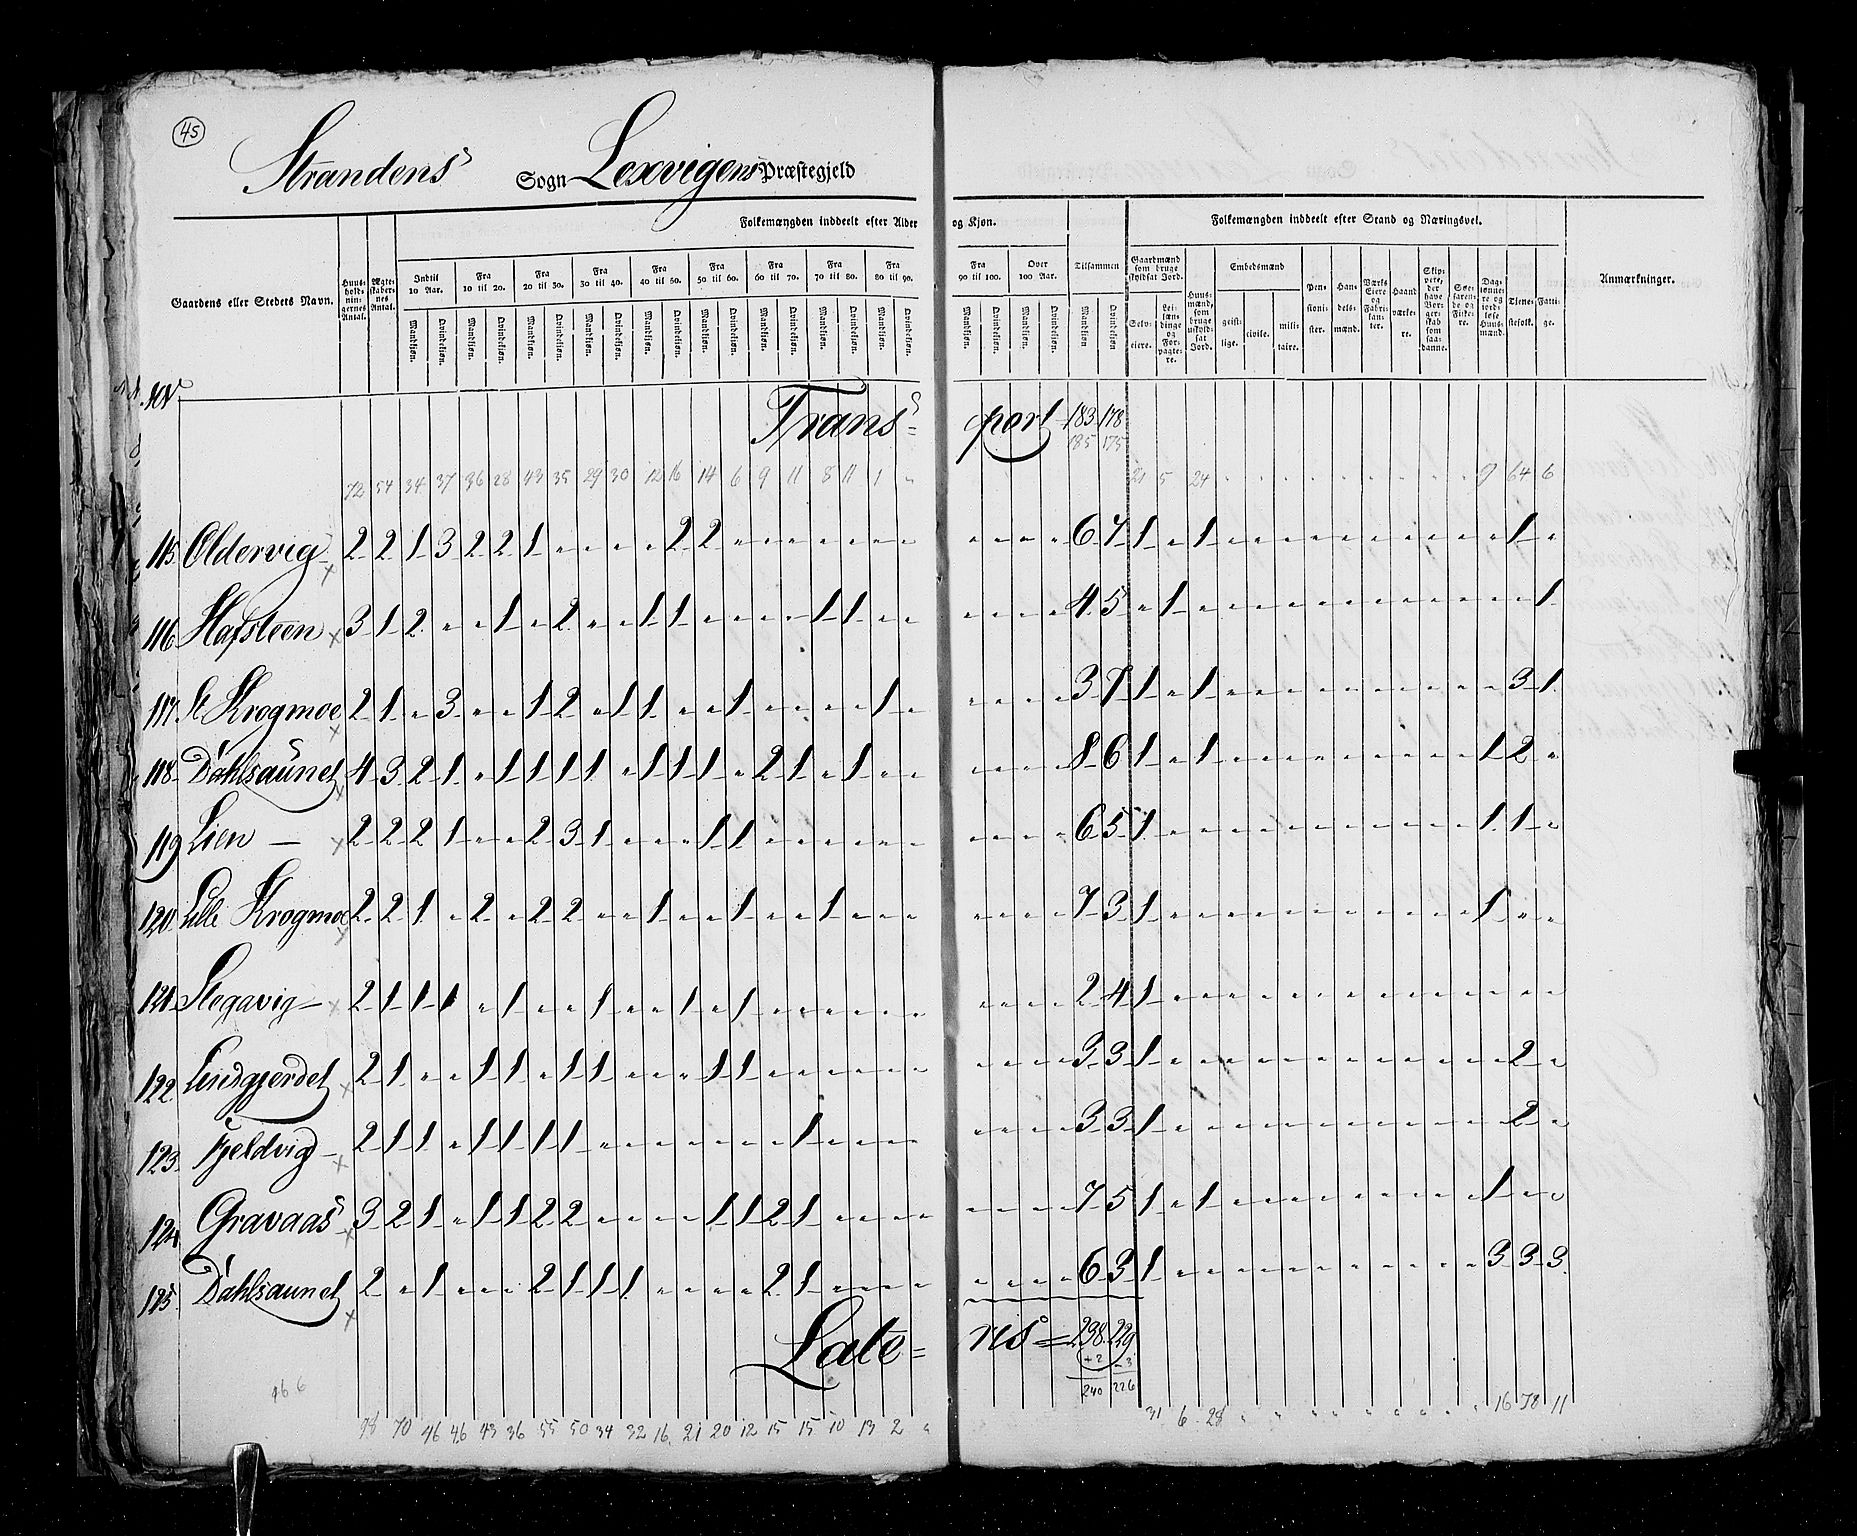 45
Strandens Sogn Lexvigens Præstegjeld
Folkemængden inddeelt efter Alder og Kjøn.
Folkemængden inddeelt efter Stand og Næringsvei.
Gaardens eller Stedets Navn.
Huus-holdnin-gernes Antal.
Ægte-skaber-nes Antal.
Indtil 10 Aar.
Fra 10 til 20.
Fra 20 til 30.
Fra 30 til 40.
Fra 40 til 50.
Fra 50 til 60.
Fra 60 til 70.
Fra 70 til 80.
Fra 80 til 90.
Fra 90 til 100.
Over 100 Aar.
Tilsammen
Mandkjøn. Qvindekjøn.
Gaardmænd som bruge skyldsat Jord.
Selv-eiere.
Lei-lændinge og For-pagte-re.
Huus-mænd, som bruge uskyld-sat Jord.
Embedsmænd
geist-lige.
civile.
mili-taire.
Pen-sioni-ster.
Han-dels-mænd.
Værks Eiere og Fabri-kan-ter.
Haand-værke-re.
Skip-pere, der have Bor-ger-skab som saa-danne.
Søe-faren-de og Fiske-re.
Dag-lønne-re og jord-løse Huus-mænd.
Tiene-stefolk.
Fatti-ge.
Anmærkninger.
No
Trans= port 183 178
185 175
72 54 34 37 36 28 43 35 29 30 12 16 14 6 9 11 8 11 1 " 21 5 24 " " " " " " " " " 9 64 6
115 Oldervig 2 2 1 3 2 2 1 " " " " 2 2 " " " " " " " " " " 6 7 1 " 1 " " " " " " " " " " 1 "
116 Hafsteen 3 1 2 " " 1 " 2 " " 1 1 " " " " 1 1 " " " " " " 4 5 " 1 " " " " " " " " " " " " 1
117 St Krogmoe 2 1 " 3 " " 1 2 " 1 1 " " 1 " " " " 1 " " " " " 3 7 1 " 1 " " " " " " " " " " 3 1
118 Dahlsaunet 4 3 2 1 " 1 1 1 1 " 1 1 1 " 2 1 " 1 " " " " " " 8 6 1 " 1 " " " " " " " " " 1 2 "
119 Lien 2 2 2 1 " " 2 3 1 " " " 1 1 " " " " " " " " " " 6 5 1 " " " " " " " " " " " 1 1 "
120 Lille Krogmoe 2 2 1 " 2 " 2 2 " " 1 " " 1 " " 1 " " " " " " " 7 3 1 " " " " " " " " " " " 1 " "
121 Stegavig 2 1 1 1 " 1 " " 1 " " 1 " 1 " " " " " " " " " " 2 4 1 " " " " " " " " " " " " " "
122 Lindgjerdet 2 1 " " 1 1 " 1 1 " " " 1 1 " " " " " " " " " " 3 3 1 " " " " " " " " " " " " 2 "
123 Fjeldvig 2 1 1 " 1 1 1 1 " " " " " " " 1 " " " " " " " " 3 3 1 " " " " " " " " " " " " 2 "
124 Gravaas 3 2 1 " 1 1 2 2 " " " " 1 1 2 1 " " " " " " " " 7 5 1 " 1 " " " " " " " " " 1 " "
125 Dahlsaunet 2 " 1 " " " 2 1 1 1 " " " " 2 1 " " " " " " " " 6 3 1 " " " " " " " " " " " 3 3 3
Late= ns = 238. 229
+2 -3
240 226
466
98 70 46 46 43 36 55 50 34 32 16 21 20 12 15 15 10 13 2 " 31 6 28 " " " " " " " " " 16 78 11